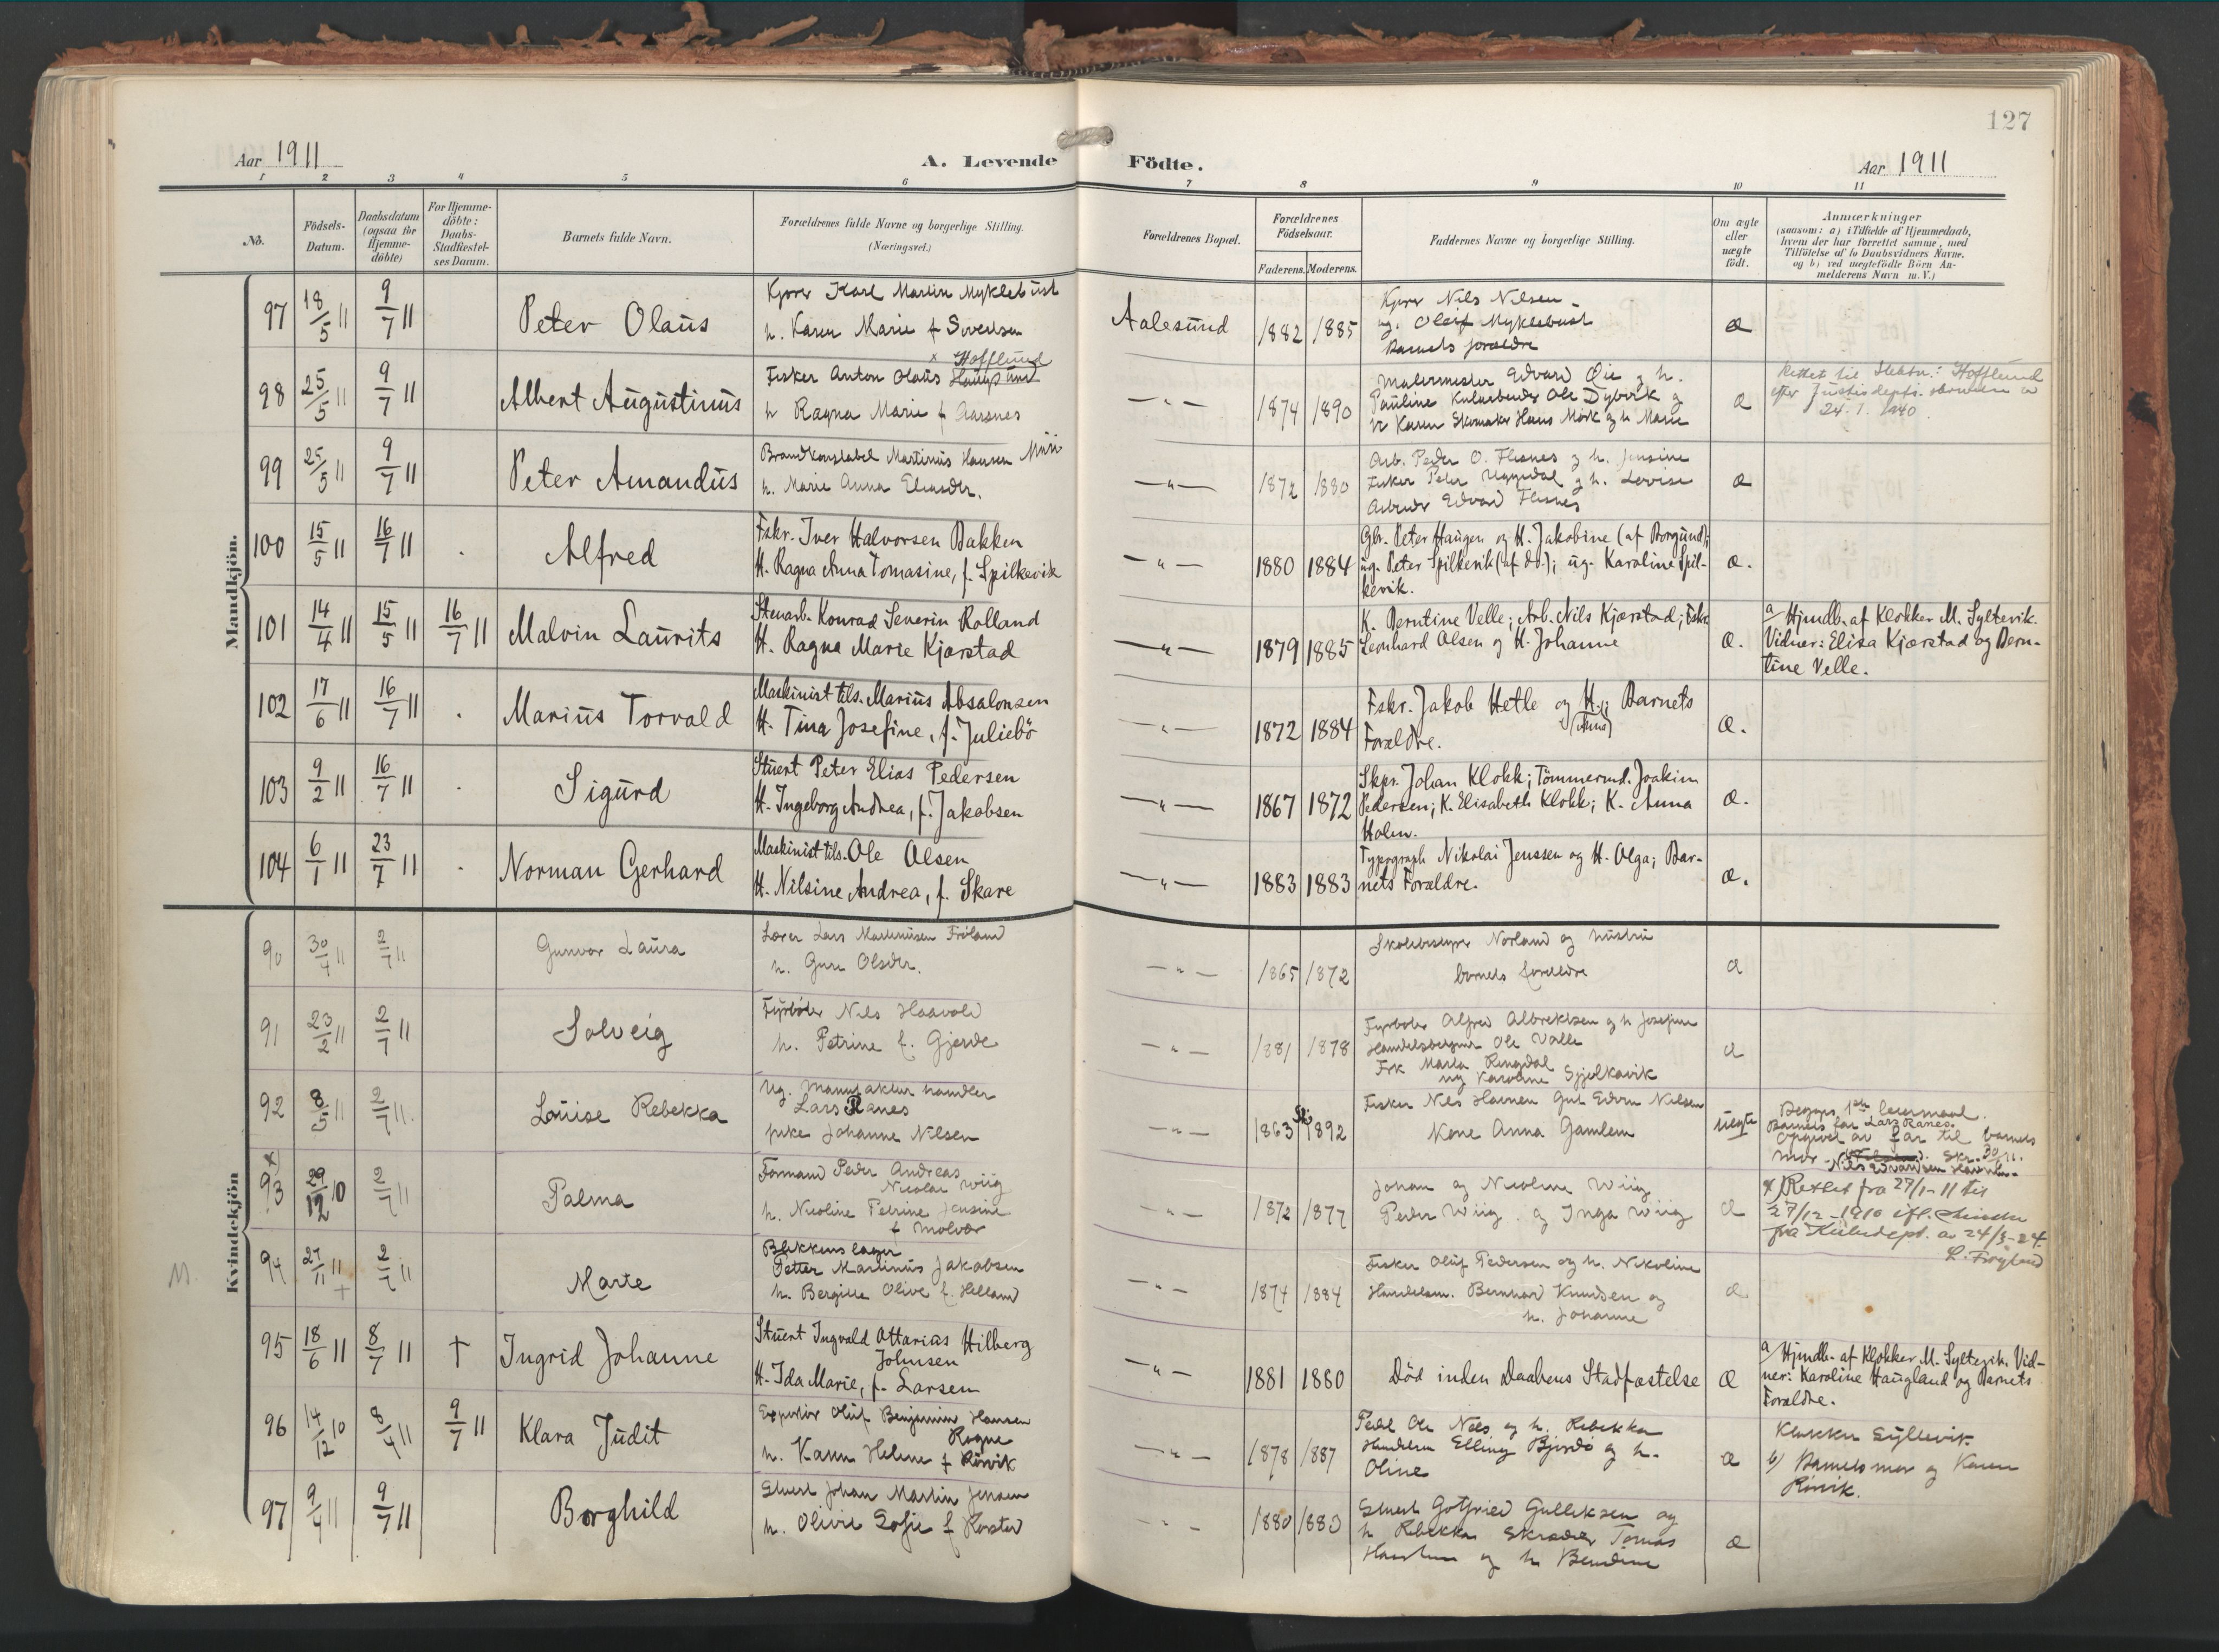 127
Aar 1911
A. Levende Födte.
Aar 1911
1 2 3 4 5 6 7 8 9 10 11
No.
Födsels-
Datum.
Daabsdatum
(ogsaa for
Hjemme-
döbte)
For Hjemme-
döbte:
Daabs-
Stadfæstel-
ses Datum.
Barnets fulde Navn.
Forældrenes fulde Navne og borgerlige Stilling.
(Næringsvei.)
Forældrenes Bopæl.
Forældrenes
Födselsaar.
Faderens. Moderens.
Faddernes Navne og borgerlige Stilling.
Om ægte
eller
uægte
födt.
Anmærkninger
(saasom: a) i Tilfælde af Hjemmedaab,
hvem der har forrettet samme, med
Tilföielse af to Daabsvidners Navne,
og b) ved uægtefödte Börn An-
melderens Navn m. V.)
Mandkjön.
97 18/5 11 9/7 11 Peter Olaus
Kjører Karl Martin Myklebust
h. Karen Marie f Sivertsen
Aalesund 1882 1885
Kjører Nils Nilsen
ug. Oleif Myklebust
Barnets forældre
æ
98 25/5 11 9/7 11 Albert Augustinus
x Hofflund
Fisker Anton Olaus Hauglund
h Ragna Marie f Aarsnes
— " — 1874 1890
Malermester Edvard Øie og h.
Pauline Ole Dybvik og
h Karen Skomaker Hans Mork og h Marie
æ
Rettet til Slektn.: Hofflund
efter Justisdepts. skrivelse av
24. 1. 1940.
99 25/5 11 9/7 11 Peter Amandus
Brandkonstabel Martinus Hansen
h. Marie Anna Eliasdtr.
— " — 1872 1880
Arb. Peder O. Flesnes og h. Jensine
Fisker Peter Uggedal og h. Lovise
Arbeider Edvard Flesnes
æ
100 15/5 11 16/7 11 . Alfred
Fskr. Iver Halvorsen Bakken
H. Ragna Anna Tomasine, f. Spilkevik
— " — 1880 1884
Gbr. Peter Haugen og H. Jakobine (af Borgund);
ug. Peter Spilkevik (af do.); ug. Karoline Spil-
kevik.
æ.
101 14/4 11 15/5 11 16/7 11 Malvin Laurits
Stenarb. Konrad Severin Rolland
H. Ragna Marie Kjærstad
— " — 1879 1885
K. Berntine Velle; Arb. Nils Kjærstad; Fskr.
Leonhard Olsen og H. Johanne
æ.
a/ Hjmdb. af Klokker M. Syltevik.
Vidner: Elisa Kjærstad og Bern-
tine Velle.
102 17/6 11 16/7 11 . Marius Torvald
Maskinist tils. Marius Absalonsen
H. Tina Josefine, f. Juliebö
— " — 1872 1884
Fskr. Jakob Hetle og H.; Barnets
(Anna)
Forældre.
æ.
103 9/2 11 16/7 11 . Sigurd
Stuert Peter Elias Pedersen
H. Ingeborg Andrea, f. Jakobsen
— " — 1867 1872
Skpr. Johan Klokk; Tömmermd. Joakim
Pedersen; K. Elisabeth Klokk; K. Anna
Holm.
æ.
104 6/1 11 23/7 11 . Norman Gerhard
Maskinist tils. Ole Olsen
H. Nilsine Andrea, f. Skare
— " — 1883 1883
Typograph Nikolai Jenssen og H. Olga; Bar-
nets Forældre.
æ.
Kvindekjön
90 30/4 11 2/7 11 Gunvor Laura
Lærer Lars Martinusen Fröland
h. Guri Olsdtr.
— " — 1865 1872
Skolebestyrer Norland og hustru
barnets forældre
æ
91 23/2 11 2/7 11 Solveig
Fyrböter Nils Haavold
h. Petrine f. Gjerde
— " — 1881 1878
Fyrböter Alfred Albrektsen og h Josefine
Ole Valle
Frk Marta Ringdal
ug Karoline Spjelkavik
æ
92 8/5 11 2/7 11 Louise Rebekka
Ug. Manufakturhandler
Lars Ranes
pike Johanne Nilsen
— " — 1863 1892
Fisker Nils Hansen Gut Edvin Nilsen
Kone Anna Gamlem
uægte
Begges 1ste leiermaal.
Barnets far Lars Ranes.
Opgivet av far til barnets
mor Skr. 30/11.
93 x) 29/12 10 2/7 11 Palma
Formand Peder Andreas
Nicolai Wiig
h. Nicoline Petrine Jensine
f Molvær
— " — 1872 1877
Johan og Nicoline Wiig
Peder Wiig og Inga Wiig
æ
x) Rettet fra 27/1-11 til
27/12-1910 ifl. skrivelse
fra Kirkedept. av 24/3-24.
L. Fröyland
94 27/11 11 2/7 11 Marie
Blikkenslager
Petter Martinus Jakobsen
h. Bergitte Olive f. Helland
— " — 1874 1884
Fisker Oluf Pedersen og h. Nikoline
Handelsm. Bernhard Knudsen og
h. Johanne
æ.
95 18/6 11 8/7 11 † Ingrid Johanne
Stuert Ingvald Attarias Hilberg
Johnsen
H. Ida Marie, f. Larsen
— " — 1881 1880
Död inden Daabens Stadfæstelse
æ
a/ Hjmdb. af Klokker M. Syltevik. Vid-
ner: Karoline Haugland og Barnets
Forældre.
96 14/12 10 8/4 11 9/7 11 Klara Judit
Exportör Oluf Benjamin Hansen
Rogne
h. Karen Helene f Rörvik
— " — 1878 1887
Ole Nees og h. Rebekka
Handelsm Elling Bjerdö og h.
Oline
æ
Klokker Syltevik
b) Barnets mor og Karen
Rörvik.
97 9/4 11 9/7 11 Borghild
Stuert Johan Martin Jensen
h. Olivie Sofie f Korstad
— " — 1880 1883
Stuert Gotfried Gulliksen og
h Rebekka Skrædder Tomas
og h Bendine
æ